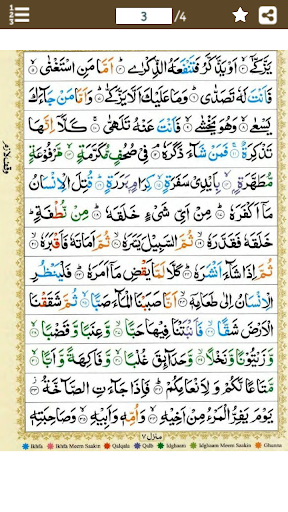 3 /4
يَزَّكّٰۤى ۙ﴿۳﴾ اَوْ يَذَّكَّرُ فَتَنْفَعَهُ الذِّكْرٰى ؕ﴿۴﴾ اَمَّا مَنِ اسْتَغْنٰى ۙ﴿۵﴾
فَاَنْتَ لَهٗ تَصَدّٰى ؕ﴿۶﴾ وَمَا عَلَيْكَ اَلَّا يَزَّكّٰى ؕ﴿۷﴾ وَاَمَّا مَنْ جَآءَكَ
يَسْعٰى ۙ﴿۸﴾ وَهُوَ يَخْشٰى ۙ﴿۹﴾ فَاَنْتَ عَنْهُ تَلَهّٰى ۚ﴿۱۰﴾ كَلَّاۤ اِنَّهَا
تَذْكِرَةٌ ۚ﴿۱۱﴾ فَمَنْ شَآءَ ذَكَرَهٗ ۘ﴿۱۲﴾ فِيْ صُحُفٍ مُّكَرَّمَةٍ ۙ﴿۱۳﴾ مَّرْفُوْعَةٍ
مُّطَهَّرَةٍۭ ۙ﴿۱۴﴾ بِاَيْدِيْ سَفَرَةٍ ۙ﴿۱۵﴾ كِرَامٍۭ بَرَرَةٍ ؕ﴿۱۶﴾ قُتِلَ الْاِنْسَانُ
مَاۤ اَكْفَرَهٗ ؕ﴿۱۷﴾ مِنْ اَيِّ شَيْءٍ خَلَقَهٗ ؕ﴿۱۸﴾ مِنْ نُّطْفَةٍ ؕ
خَلَقَهٗ فَقَدَّرَهٗ ۙ﴿۱۹﴾ ثُمَّ السَّبِيْلَ يَسَّرَهٗ ۙ﴿۲۰﴾ ثُمَّ اَمَاتَهٗ فَاَقْبَرَهٗ ۙ﴿۲۱﴾
ثُمَّ اِذَا شَآءَ اَنْشَرَهٗ ؕ﴿۲۲﴾ كَلَّا لَمَّا يَقْضِ مَاۤ اَمَرَهٗ ؕ﴿۲۳﴾ فَلْيَنْظُرِ
الْاِنْسَانُ اِلٰى طَعَامِهٖۤ ۙ﴿۲۴﴾ اَنَّا صَبَبْنَا الْمَآءَ صَبًّا ۙ﴿۲۵﴾ ثُمَّ شَقَقْنَا
الْاَرْضَ شَقًّا ۙ﴿۲۶﴾ فَاَنْۢبَتْنَا فِيْهَا حَبًّا ۙ﴿۲۷﴾ وَّعِنَبًا وَّقَضْبًا ۙ﴿۲۸﴾
وَّزَيْتُوْنًا وَّنَخْلًا ۙ﴿۲۹﴾ وَّحَدَآئِقَ غُلْبًا ۙ﴿۳۰﴾ وَّفَاكِهَةً وَّاَبًّا ۙ﴿۳۱﴾
مَّتَاعًا لَّكُمْ وَلِاَنْعَامِكُمْ ؕ﴿۳۲﴾ فَاِذَا جَآءَتِ الصَّآخَّةُ ۙ﴿۳۳﴾
يَوْمَ يَفِرُّ الْمَرْءُ مِنْ اَخِيْهِ ۙ﴿۳۴﴾ وَاُمِّهٖ وَاَبِيْهِ ۙ﴿۳۵﴾ وَصَاحِبَتِهٖ
منزل ۷
Ikhfa Ikhfa Meem Saakin Qalqala Qalb Idghaam Idghaam Meem Saakin Ghunna